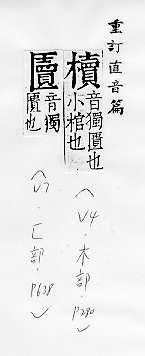 重訂直音篇
櫝
音獨匱也
小棺也
〈V4·木部·P290〉
匵
音獨
匱也
〈V7·匚部·P628〉